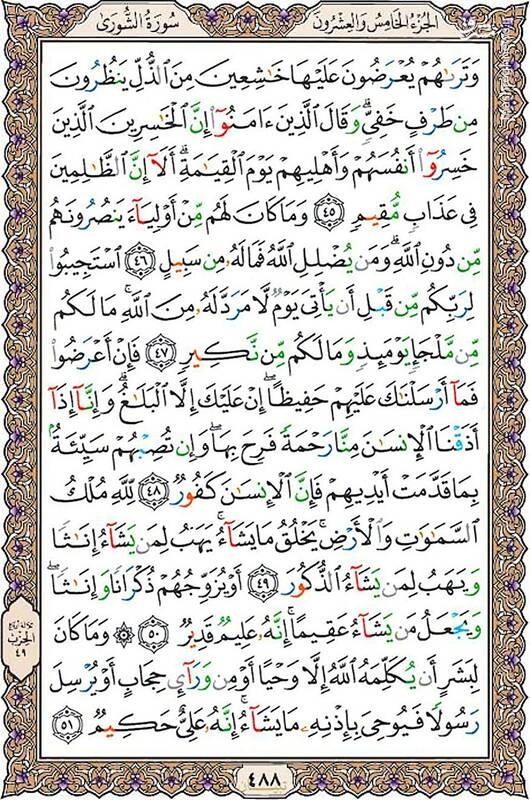 سُورَةُ الشُّورَىٰ الجُزْءُ الخَامِسُ وَالعِشْرُونَ
وَتَرَىٰهُمْ يُعْرَضُونَ عَلَيْهَا خَٰشِعِينَ مِنَ ٱلذُّلِّ يَنظُرُونَ
مِن طَرْفٍ خَفِىٍّ ۗ وَقَالَ ٱلَّذِينَ ءَامَنُوٓا۟ إِنَّ ٱلْخَٰسِرِينَ ٱلَّذِينَ
خَسِرُوٓا۟ أَنفُسَهُمْ وَأَهْلِيهِمْ يَوْمَ ٱلْقِيَٰمَةِ ۗ أَلَآ إِنَّ ٱلظَّٰلِمِينَ
فِى عَذَابٍ مُّقِيمٍ ٤٥ وَمَا كَانَ لَهُم مِّنْ أَوْلِيَآءَ يَنصُرُونَهُم
مِّن دُونِ ٱللَّهِ ۗ وَمَن يُضْلِلِ ٱللَّهُ فَمَا لَهُۥ مِن سَبِيلٍ ٤٦ ٱسْتَجِيبُوا۟
لِرَبِّكُم مِّن قَبْلِ أَن يَأْتِىَ يَوْمٌ لَّا مَرَدَّ لَهُۥ مِنَ ٱللَّهِ ۚ مَا لَكُم
مِّن مَّلْجَإٍ يَوْمَئِذٍ وَمَا لَكُم مِّن نَّكِيرٍ ٤٧ فَإِنْ أَعْرَضُوا۟
فَمَآ أَرْسَلْنَٰكَ عَلَيْهِمْ حَفِيظًا ۖ إِنْ عَلَيْكَ إِلَّا ٱلْبَلَٰغُ ۗ وَإِنَّآ إِذَآ
أَذَقْنَا ٱلْإِنسَٰنَ مِنَّا رَحْمَةً فَرِحَ بِهَا ۖ وَإِن تُصِبْهُمْ سَيِّئَةٌۢ
بِمَا قَدَّمَتْ أَيْدِيهِمْ فَإِنَّ ٱلْإِنسَٰنَ كَفُورٌ ٤٨ لِّلَّهِ مُلْكُ
ٱلسَّمَٰوَٰتِ وَٱلْأَرْضِ ۚ يَخْلُقُ مَا يَشَآءُ ۚ يَهَبُ لِمَن يَشَآءُ إِنَٰثًا
وَيَهَبُ لِمَن يَشَآءُ ٱلذُّكُورَ ٤٩ أَوْ يُزَوِّجُهُمْ ذُكْرَانًا وَإِنَٰثًا ۖ
وَيَجْعَلُ مَن يَشَآءُ عَقِيمًا ۚ إِنَّهُۥ عَلِيمٌ قَدِيرٌ ٥٠ ۞ وَمَا كَانَ
لِبَشَرٍ أَن يُكَلِّمَهُ ٱللَّهُ إِلَّا وَحْيًا أَوْ مِن وَرَآئِ حِجَابٍ أَوْ يُرْسِلَ
رَسُولًا فَيُوحِىَ بِإِذْنِهِۦ مَا يَشَآءُ ۚ إِنَّهُۥ عَلِىٌّ حَكِيمٌ ٥١
الحِزْب
٤٩
٤٨٨